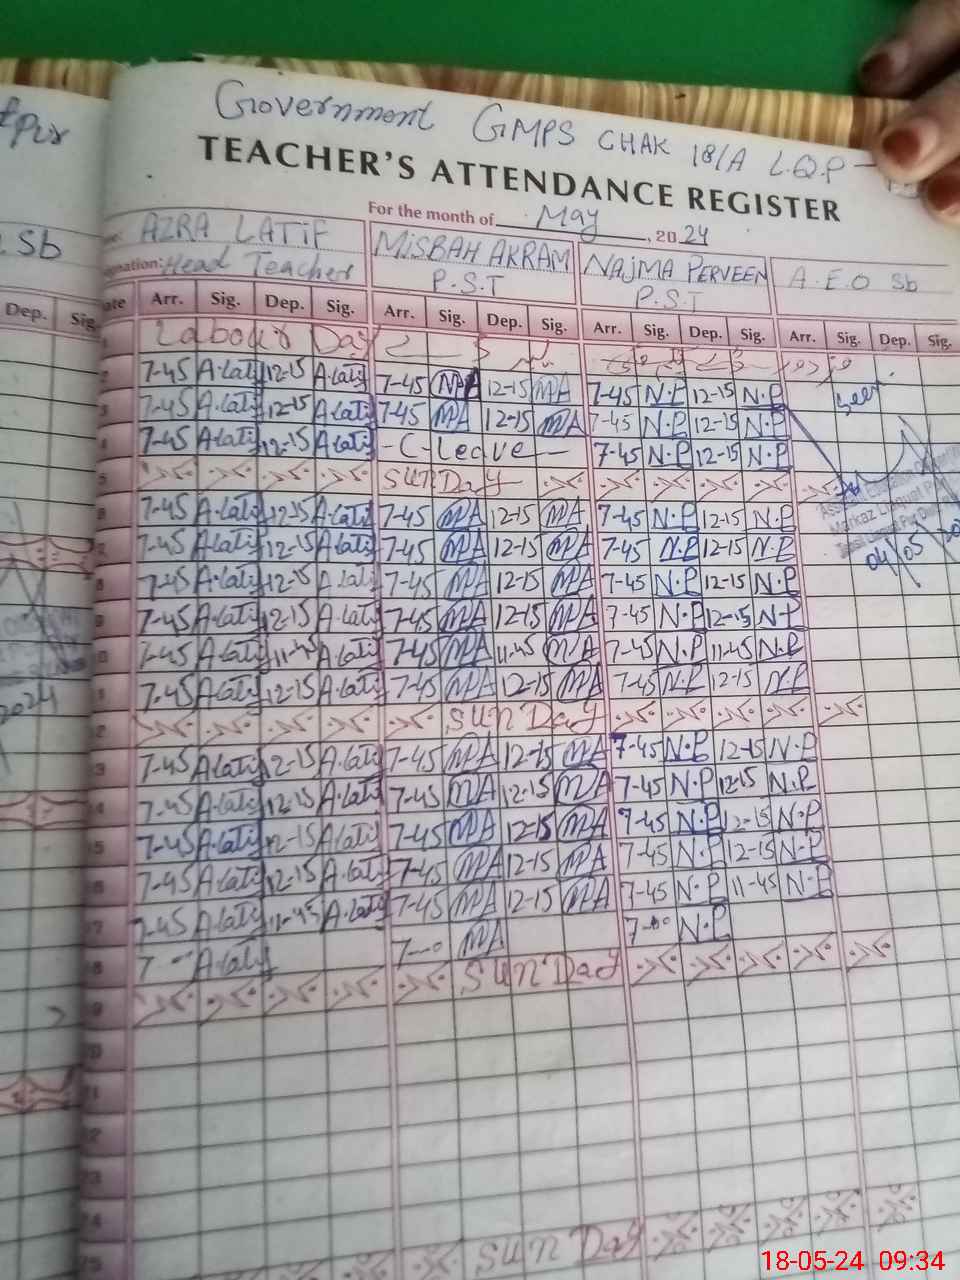 Government GMPS CHAK 18/A L.Q.P
TEACHER'S ATTENDANCE REGISTER
For the month of May, 2024
AZRA LATIF MISBAH AKRAM NAJMA PERVEEN A.E.O Sb
Head Teacher P.S.T P.S.T
Sb
Dep. Sig.
Arr. Sig. Dep. Sig. Arr. Sig. Dep. Sig. Arr. Sig. Dep. Sig. Arr. Sig. Dep. Sig.
Labour Day
7-45 A.Latif 12-15 A.Latif 7-45 MA 12-15 MA 7-45 N.P 12-15 N.P seen
7-45 A.Latif 12-15 A.Latif 7-45 MA 12-15 MA 7-45 N.P 12-15 N.P
7-45 A.Latif 12-15 A.Latif -C-Leave- 7-45 N.P 12-15 N.P
SUNDAY
7-45 A.Latif 12-15 A.Latif 7-45 MA 12-15 MA 7-45 N.P 12-15 N.P
7-45 A.Latif 12-15 A.Latif 7-45 MA 12-15 MA 7-45 N.P 12-15 N.P
04/05
7-45 A.Latif 12-15 A.Latif 7-45 MA 12-15 MA 7-45 N.P 12-15 N.P
7-45 A.Latif 12-15 A.Latif 7-45 MA 12-15 MA 7-45 N.P 12-15 N.P
7-45 A.Latif 11-45 A.Latif 7-45 MA 11-45 MA 7-45 N.P 11-45 N.P
7-45 A.Latif 12-15 A.Latif 7-45 MA 12-15 MA 7-45 N.P 12-15 N.P
2024
SUNDAY
7-45 A.Latif 12-15 A.Latif 7-45 MA 12-15 MA 7-45 N.P 12-15 N.P
7-45 A.Latif 12-15 A.Latif 7-45 MA 12-15 MA 7-45 N.P 12-15 N.P
7-45 A.Latif 12-15 A.Latif 7-45 MA 12-15 MA 7-45 N.P 12-15 N.P
7-45 A.Latif 12-15 A.Latif 7-45 MA 12-15 MA 7-45 N.P 12-15 N.P
7-45 A.Latif 11-45 A.Latif 7-45 MA 12-15 MA 7-45 N.P 11-45 N.P
7 A.Latif 7 MA 7-00 N.P
SUNDAY
SUNDAY
18-05-24 09:34